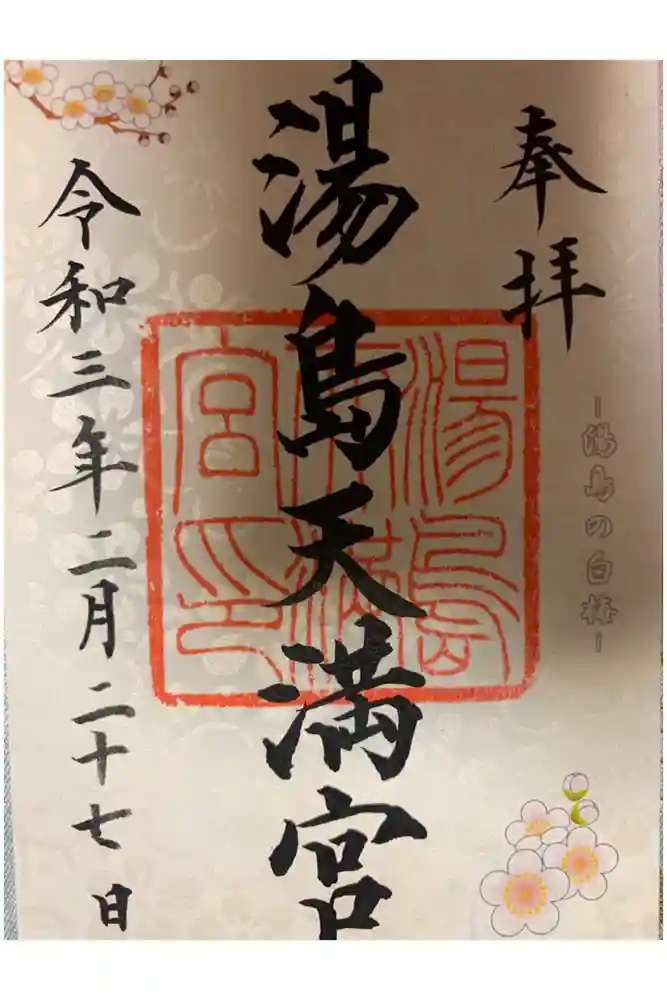 奉拝
ー湯島の白梅ー
湯島天満宮
湯島天満宮印
令和三年二月二十七日